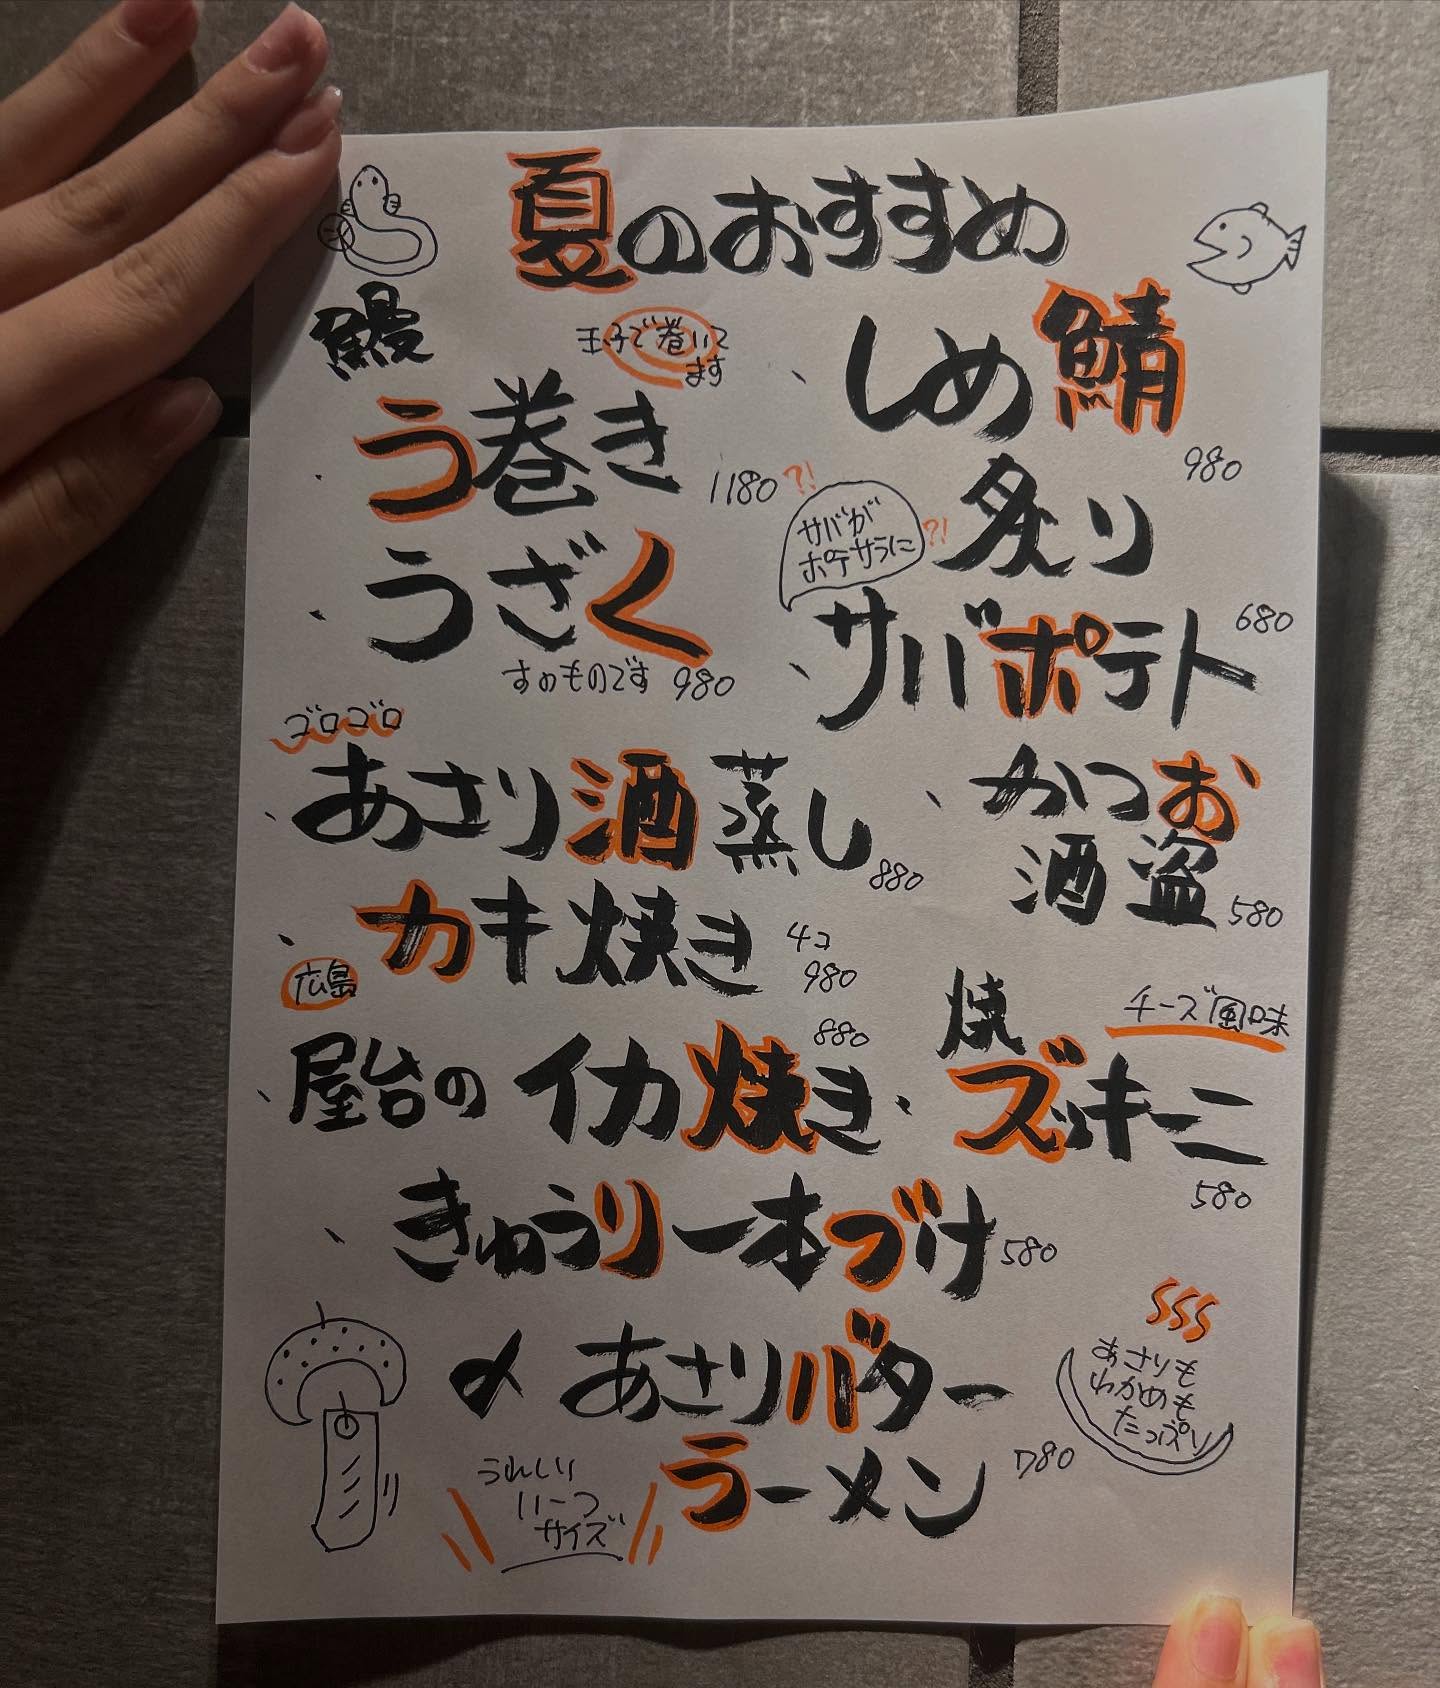 夏のおすすめ
鰻
玉子で巻いて
ます
う巻き
1180
うざく
すのものです 980
しめ鯖
980
炙り
サバポテト
680
?!
サバが
ポテサラに
?!
ゴロゴロ
あさり酒蒸し
880
かつお
酒盗
580
カキ焼き
4コ
980
広島
屋台のイカ焼き
880
焼
ズッキーニ
チーズ風味
580
きゅうり一本づけ
580
〆 あさりバター
ラーメン
780
うれしい
サイズ
あさりも
わかめも
たっぷり
SSS